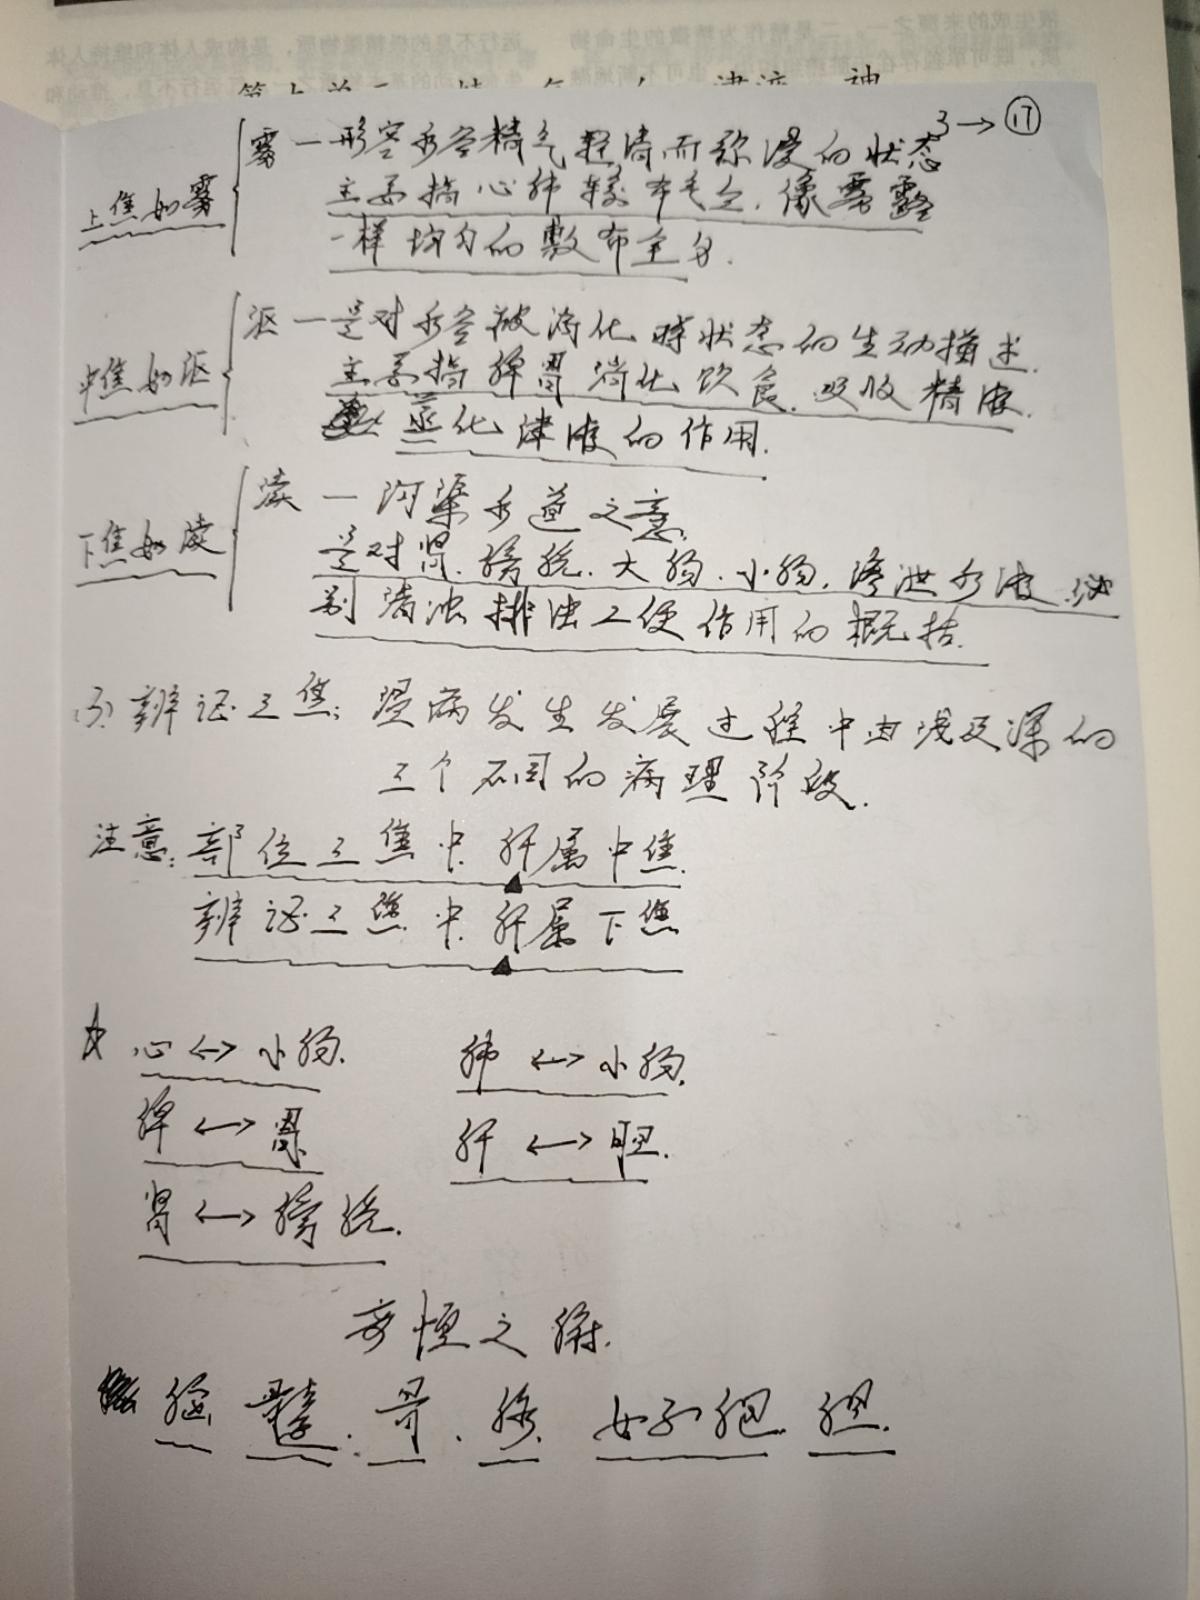 3→⑰
上焦如雾
雾一形容水谷精气轻清而弥漫的状态
主要指心肺输布气血，像雾露
一样均匀的敷布全身.
中焦如沤
沤一是对水谷被消化时状态的生动描述.
主要指脾胃消化饮食.吸收精液.
蒸化津液的作用.
下焦如渎
渎一沟渠水道之意.
是对肾.膀胱.大肠.小肠.渗泄水液.泌
别清浊排泄二便作用的概括.
(3)辨证三焦：温病发生发展过程中由浅及深的
三个不同的病理阶段.
注意：部位三焦中.肝属中焦.
辨证三焦中.肝属下焦
心↔小肠. 肺↔小肠.
脾↔胃. 肝↔胆.
肾↔膀胱.
奇恒之腑.
脑 髓.骨.脉. 女子胞 胆.